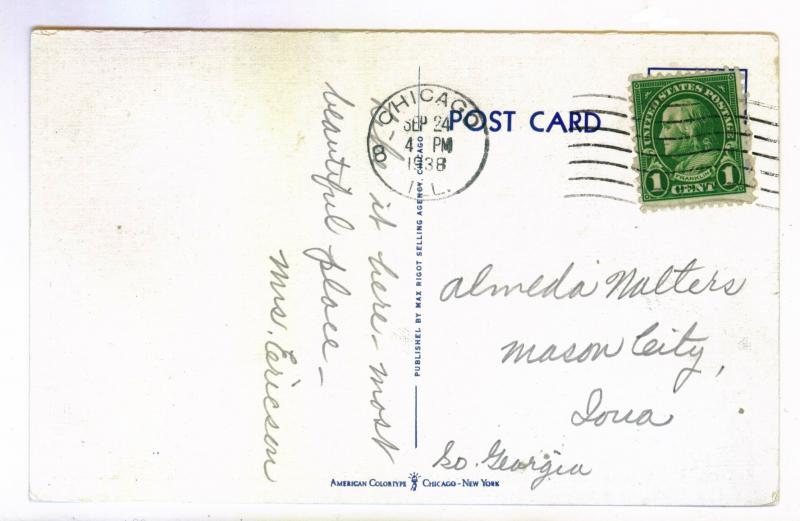 CHICAGO
SEP 24
4 PM
1938
8
POST CARD
UNITED STATES POSTAGE
FRANKLIN
1 CENT 1
it here - most
beautiful place -
Mrs. Ericson
PUBLISHED BY MAX RIGOT SELLING AGENCY, CHICAGO
Almeda Walters
Mason City,
Iowa
So. Georgia
AMERICAN COLORTYPE CHICAGO - NEW YORK